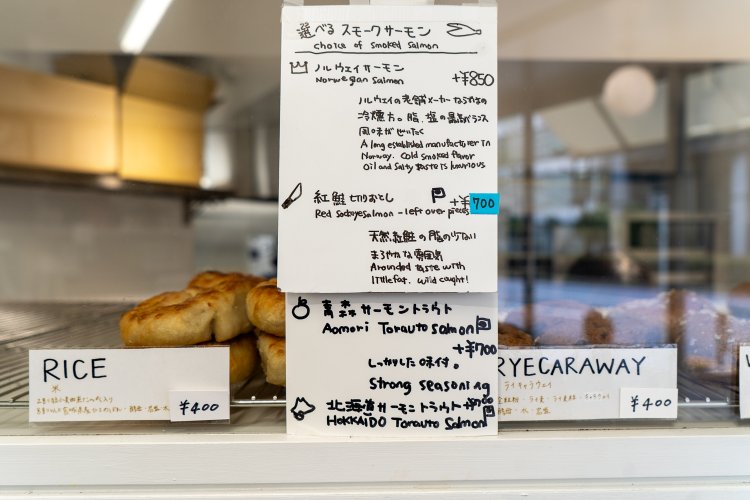 選べる スモークサーモン
choice of smoked salmon
ノルウェイサーモン
Norwegian Salmon
+¥850
ノルウェイの老舗メーカー
冷燻方。脂、塩の
風味が
A long established manufacturer in
Norway. Cold smoked flavor
Oil and Salty taste is luxurious
紅鮭 切りおとし
+¥700
Red Sockeyesalmon - left over pieces
天然紅鮭の脂の少ない
まろやかな雰囲気
Arounded taste with
little fat. wild caught!
青森 サーモントラウト
Aomori Torauto salmon
+¥700
しっかりした味付。
Strong seasoning
北海道サーモントラウト +¥700
HOKKAIDO Torauto Salmon
RICE
米
¥400
RYECARAWAY
ライキャラウェイ
¥400